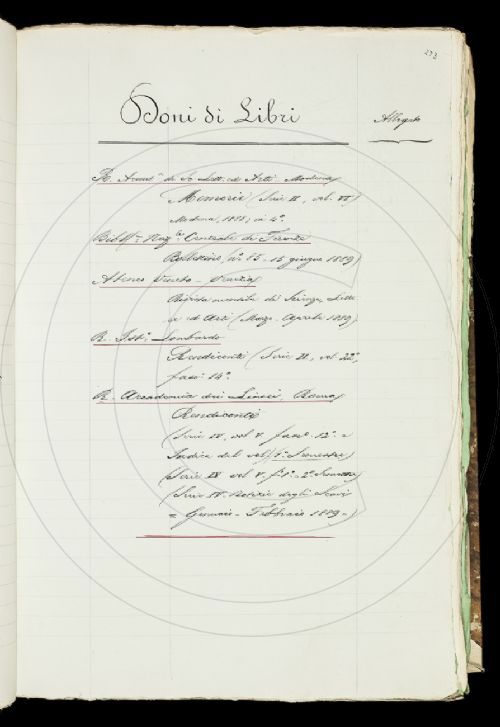 273
Doni di Libri
Allegato
R. Accad.ª di Sc. Lett. ed Arti Modena
Memorie (Serie II, vol. VI)
Modena, 1888; in 4.º
Bibl. Naz.le Centrale di Firenze
Bollettino, nº 85. 15 giugno 1889)
Ateneo Veneto - Venezia
Rivista mensile di Scienze, Lette
re ed Arti (Marzo-Aprile 1889)
R. Ist.º Lombardo
Rendiconti (Serie II, vol. 22º,
fasc. 14º.
R. Accademia dei Lincei, Roma
Rendiconti
(Serie IV, vol. V. fasc. 12º =
Indice del vol. (1º Semestre)
(Serie IV vol V. f. 1º = 2º Semestre)
(Serie IV. Notizie degli Scavi
= Gennaio - Febbraio 1889 =)